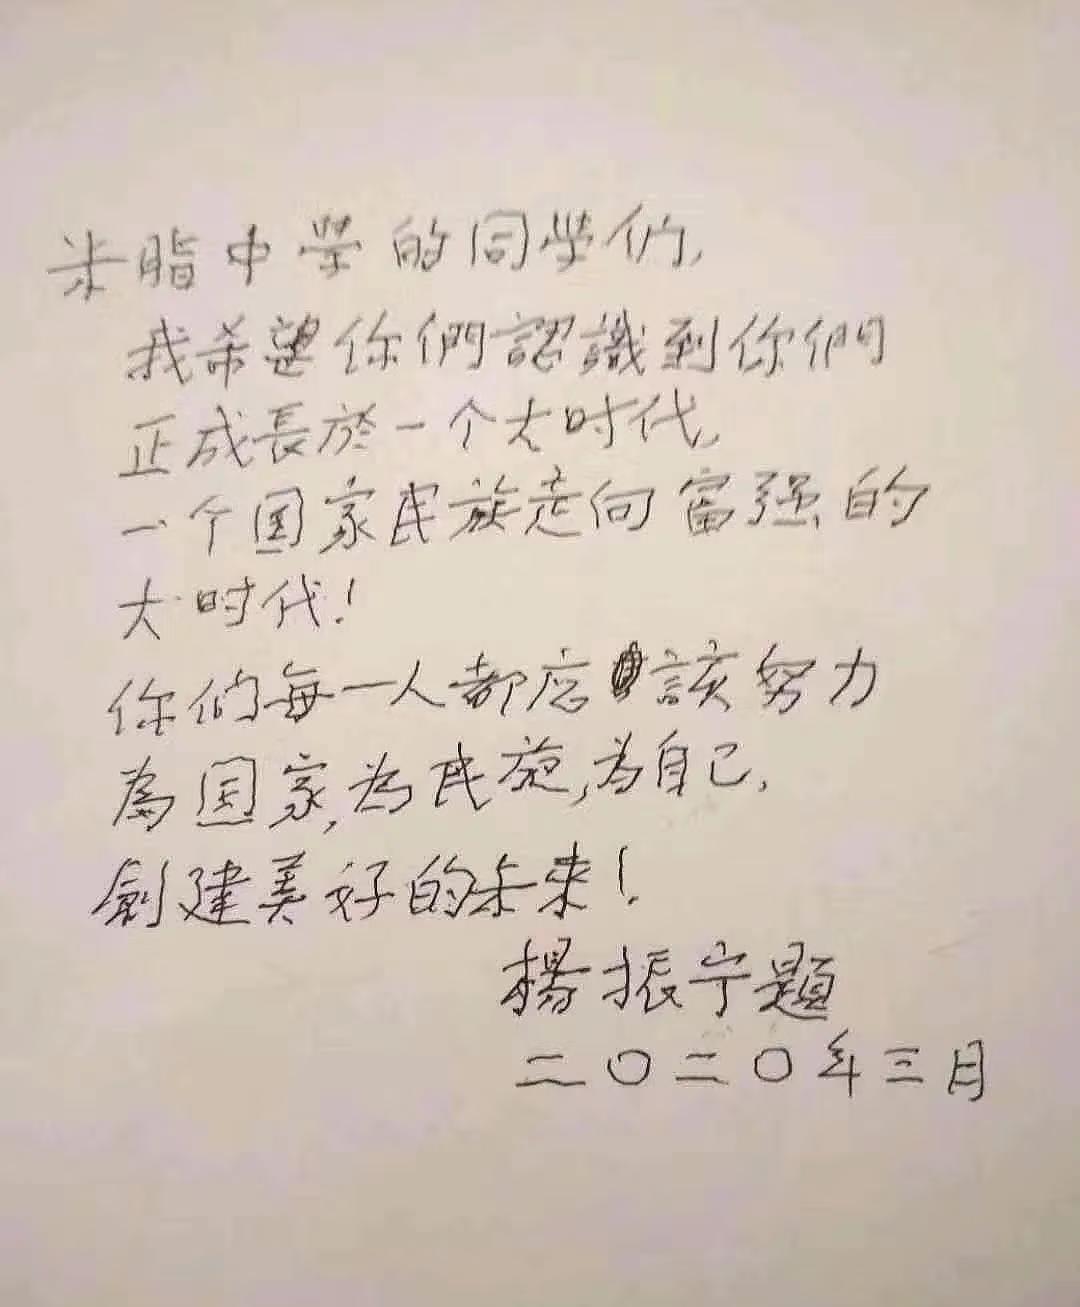 米脂中學的同学们,
我希望你們認識到你們
正成長於一个大时代,
一个国家民族走向富强的
大时代!
你们每一人都应該努力
為国家,为民族,为自己,
創建美好的未來!
楊振宁題
二〇二〇年三月